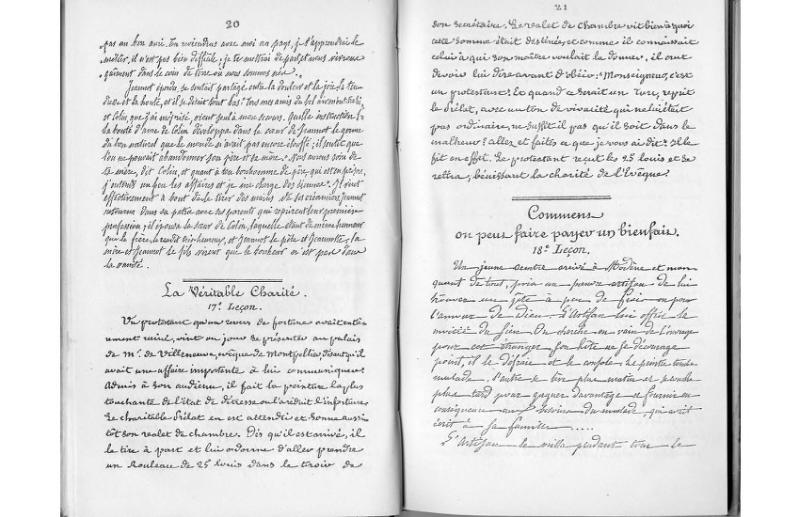 20
pas au bon ami. Tu reviendras avec moi au pays, je t'apprendrai le
métier, il n'est pas bien difficile, je te mettrai de part et nous vivrons
gaîment dans le coin de terre où nous sommes nés.
Jeannot éperdu, se sentait partagé entre la douleur et la joie, la ten-
dresse et la honte, et il se disait tout bas: Tous mes amis du bel air m'ont trahi,
et Colin, que j'ai méprisé, vient seul à mon secours. Quelle instruction!
La bonté d'âme de Colin développa dans le cœur de Jeannot le germe
du bon naturel que le monde n'avait pas encore étouffé; il sentit que
l'on ne pouvait abandonner son père et sa mère. Nous aurons soin de
ta mère, dit Colin, et quant à ton bonhomme de père, qui est en prison,
j'entends un peu les affaires et je me charge des siennes. Il vint
effectivement à bout de le tirer des mains de ses créanciers, Jeannot
retourna dans sa patrie avec ses parents qui reprirent leur première
profession; il épousa la sœur de Colin, laquelle étant de même humeur
que le frère, le rendit très heureux, et Jeannot le père et Jeannotte, la
mère et Jeannot le fils virent que le bonheur n'est pas dans
la vanité.
La Véritable Charité.
17e Leçon.
Un protestant qu'un revers de fortune avait entiè-
rement ruiné, vint un jour se présenter au palais
de Mr. de Villeneuve, évêque de Montpellier, disant qu'il
avait une affaire importante à lui communiquer.
Admis à son audience, il fait la peinture la plus
touchante de l'état de détresse où l'a réduit l'infortune.
Le charitable Prélat en est attendri et sonne aussi-
tôt son valet de chambre. Dès qu'il est arrivé, il
le tire à part et lui ordonne d'aller prendre
un Rouleau de 25 louis dans le tiroir de
21
son secrétaire. Le valet de chambre vit bien à quoi
cette somme était destinée, et comme il connaissait
celui à qui son maître voulait la donner, il crut
devoir lui dire avant d'obéir: Monseigneur, c'est
un protestant. Et quand ce serait un Turc, reprit
le Prélat, avec un ton de vivacité qui ne lui était
pas ordinaire, ne suffit-il pas qu'il soit dans le
malheur? allez et faites ce que je vous ai dit. Il le
fit en effet. Le protestant reçut les 25 louis et se
retira, bénissant la charité de l'Evêque.
Comment
on peut faire payer un bienfait.
18e Leçon.
Un jeune peintre arrivé à Modène et man-
quant de tout, pria un pauvre artisan de lui
trouver un gîte à peu de frais ou pour
l'amour de Dieu. L'Artisan lui offrit la
moitié du sien. On cherche en vain de l'ouvrage
pour cet étranger, son hôte ne se décourage
point, il le défraie et le console. Le peintre tombe
malade, l'autre se lève plus matin et se couche
plus tard pour gagner davantage et fournir en
conséquence aux besoins du malade, qui avait
écrit à sa famille .....
L'Artisan le veilla pendant tout le